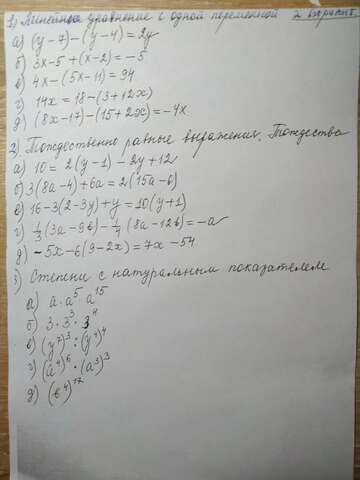 1) Линейное уравнение с одной переменной 2 вариант
а) (y-7)-(y-4)=2y
б) 3x-5+(x-2)=-5
в) 4x-(5x-11)=94
г) 14x=18-(3+12x)
д) (8x-17)-(15+2x)=-4x
2) Тождественно равные выражения. Тождества
а) 10=2(y-1)-2y+12
б) 3(8a-4)+6a=2(15a-6)
в) 16-3(2-3y)+y=10(y+1)
г) 1/3(3a-9b)-1/4(8a-12b)=-a
д) -5x-6(9-2x)=7x-54
3) Степени с натуральным показателем
а) a·a⁵·a¹⁵
б) 3·3³·3⁴
в) (y⁷)³:(y⁴)⁴
г) (a⁴)⁶·(a³)³
д) (b⁴)¹⁷